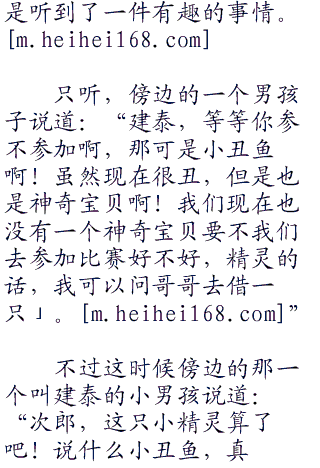 是听到了一件有趣的事情。
[m.heihei168.com]
只听，傍边的一个男孩
子说道：“建泰，等等你参
不参加啊，那可是小丑鱼
啊！虽然现在很丑，但是也
是神奇宝贝啊！我们现在也
没有一个神奇宝贝要不我们
去参加比赛好不好，精灵的
话，我可以问哥哥去借一
只」。[m.heihei168.com]”
不过这时候傍边的那一
个叫建泰的小男孩说道：
“次郎，这只小精灵算了
吧！说什么小丑鱼，真